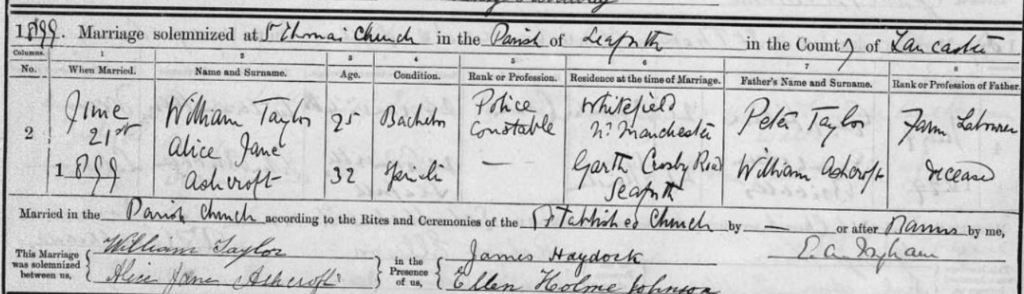 1899. Marriage solemnized at St Thomas Church in the Parish of Seaforth in the County of Lancaster
Columns. 1 2 3 4 5 6 7 8
No. When Married. Name and Surname. Age. Condition. Rank or Profession. Residence at the time of Marriage. Father's Name and Surname. Rank or Profession of Father.
2 June 21st 1899 William Taylor 25 Bachelor Police Constable Whitefield Nr Manchester Peter Taylor Farm Labourer
Alice Jane Ashcroft 32 Spinster — Garth Crosby Road Seaforth William Ashcroft deceased
Married in the Parish Church according to the Rites and Ceremonies of the Established Church by — or after Banns by me,
This Marriage was solemnized between us, William Taylor Alice Jane Ashcroft in the Presence of us, James Haydock Ellen Holme Johnson